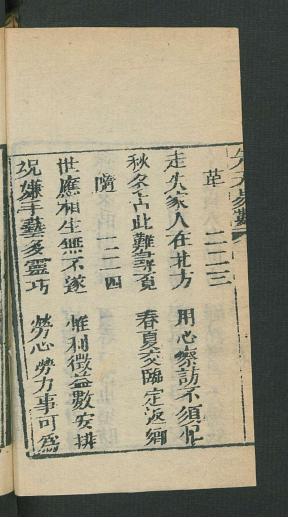 革　二二三
走失家人在北方　用心察訪不須忙
秋冬占此難尋覓　春夏交臨定返鄉
隨　二二四
世應相生無不遂　惟利微益數安排
況嫌手藝多靈巧　勞心勞力事可為